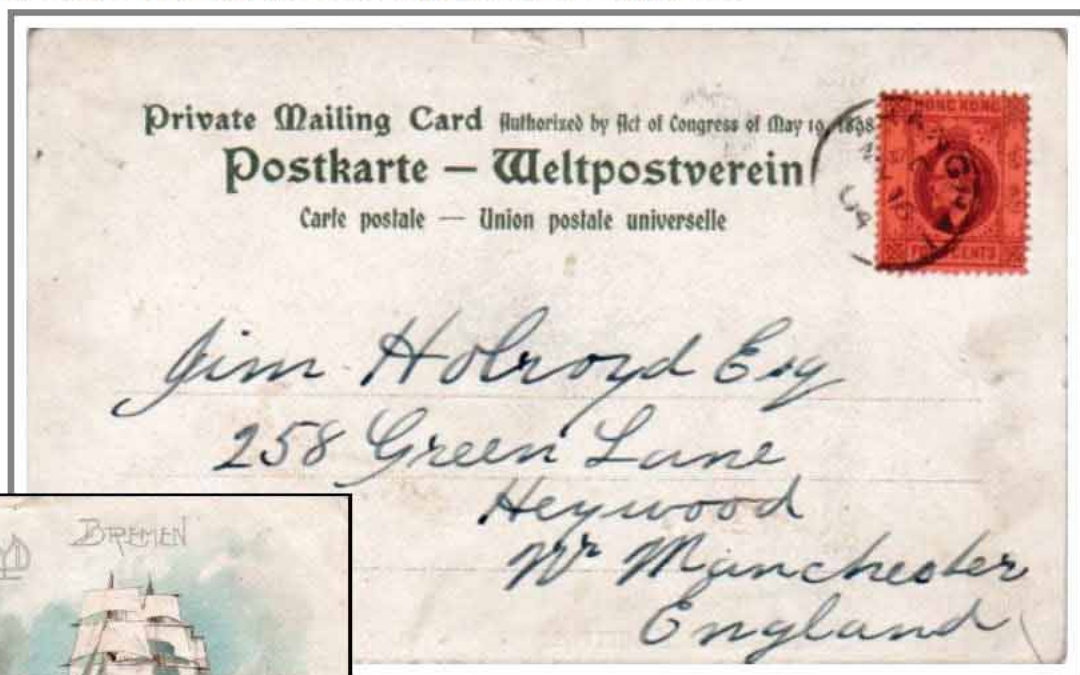 Private Mailing Card Authorized by Act of Congress of May 19, 1898
Postkarte — Weltpostverein
Carte postale — Union postale universelle
HONG KONG
FOUR CENTS
Jim Holroyd Esq
258 Green Lane
Heywood
Nr Manchester
England
BREMEN